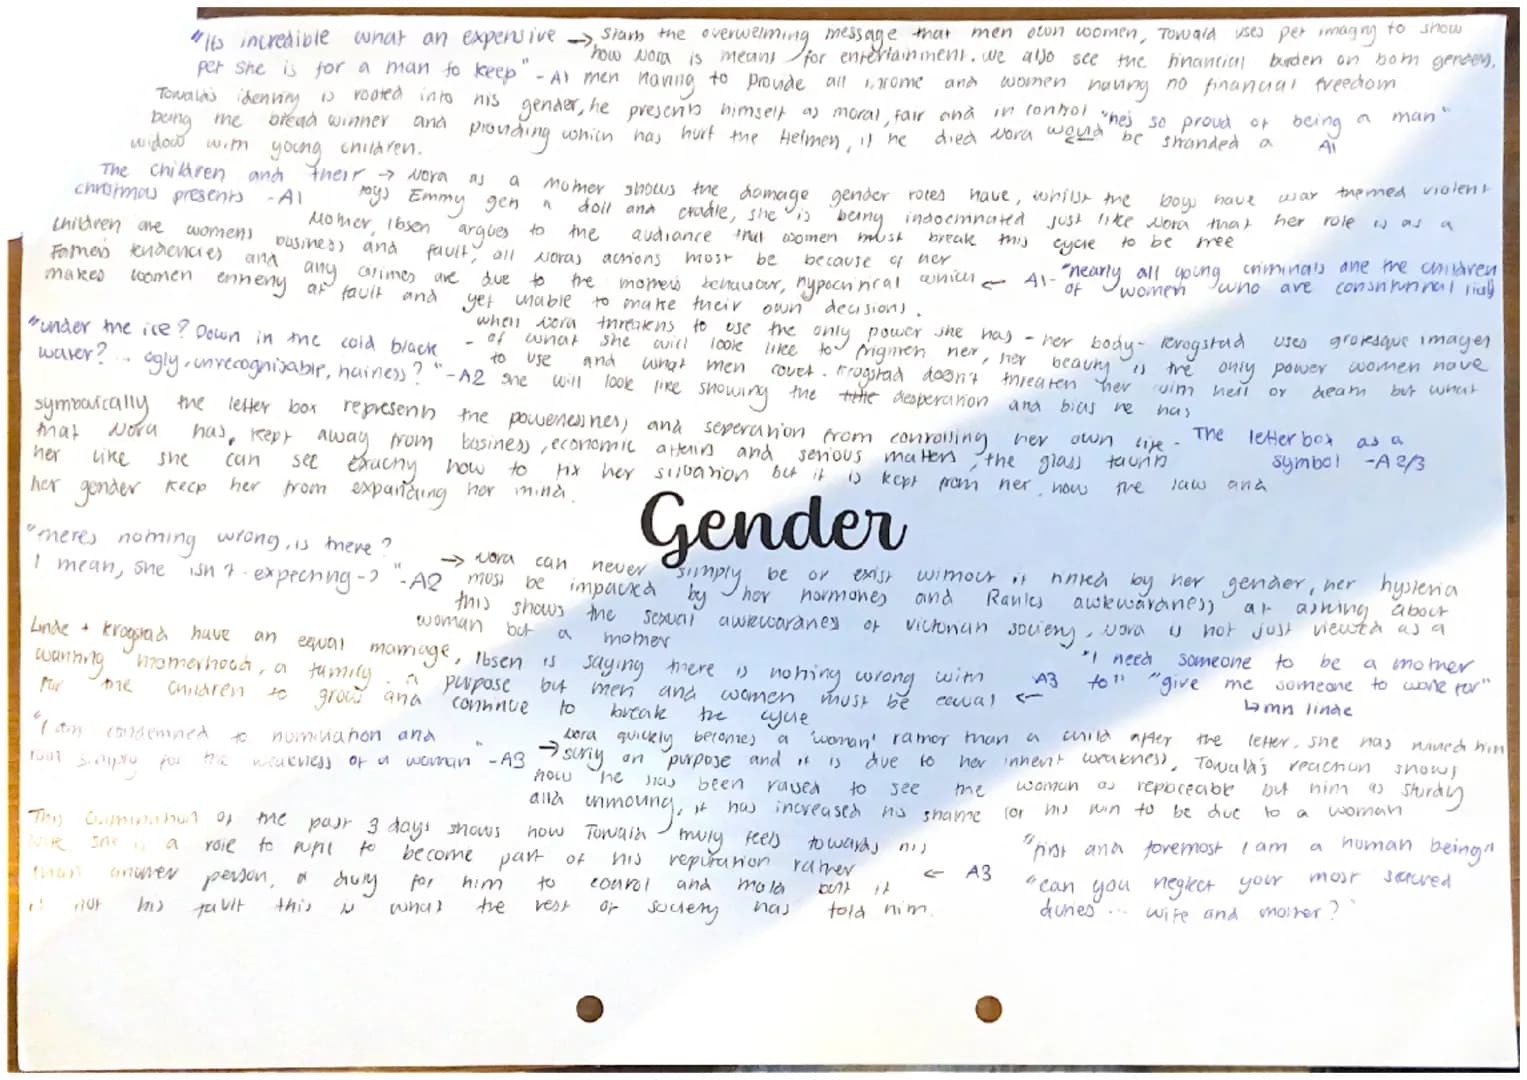 "Its incredible what an expensive → Starts the overwelming message that men own women, Towald uses pet imagry to show
pet she is for a man to keep" - A1 how Nora is means for entertainment. We also see the financial burden on both genders,
men having to provide all income and women having no financial freedom
Towalds identity is rooted into his gender, he presents himself as moral, fair and in control "he's so proud of being a man"
being the bread winner and providing which has hurt the Helmers, if he died Nora would be stranded a A1
widow with young children.
The children and their → Nora as a mother shows the damage gender roles have, whilst the boys have war themed violent
christmas presents - A1 toys Emmy gets a doll and cradle, she is being just like Nora that her role is as a
Mother, Ibsen argues to the audience that women must break this cycle to be free
Children are womens business and fault, all Noras actions must be because of her
Fathers tendencies and any crimes are due to the mothers behaviour, hypocritical which ← A1- "nearly all young criminals are the children
makes women at fault and yet unable to make their own decisions. of women who are
"under the ice? Down in the cold black - when Nora threatens to use the only power she has - her body- Krogstad uses grotesque images
water? .. ugly, unrecognisable, hairless?" -A2 of what she will look like to frighten her, her beauty is the only power women have
to use and what men covet. Krogstad doesn't threaten her with hell or death but what
she will look like showing the desperation and bias he has
symbolically the letter box represents the powerlessness and seperation from controlling her own life - The letter box as a
that Nora has, kept away from business, economic affairs and serious matters, the glass taunts symbol -A2/3
her like she can see exactly how to fix her situation but it is kept from her, how the law and
her gender keep her from expanding her mind.
Gender
"theres nothing wrong, is there?
I mean, she isn't - expecting -?" -A2 → Nora can never simply be or exist without it tinted by her gender, her hysteria
must be impacted by her hormones and Ranks awkwardness at asking about
this shows the sexual awkwardness of victorian society, Nora is not just viewed as a
woman but a mother
Linde + Krogstad have an equal marriage, Ibsen is saying there is nothing wrong with "I need someone to be a mother
wanting motherhood, a family, a purpose but men and women must be equal ← A3 to" "give me someone to work for"
for the children to grow and continue to break the cycle ↳ mrs linde
"I am condemned to humiliation and
ruin simply for the weakness of a woman" -A3 → Nora quickly becomes a 'woman' rather than a child after the letter. She has ruined him
on purpose and it is due to her weakness, Towalds reaction shows
how he has been raised to see the woman as replaceable but him as sturdy
and unmoving, it has increased his shame for his ruin to be due to a woman
This culmination of the past 3 days shows how Towald truly feels towards his
wife she is a role to fulfil to become part of his reputation rather ← A3
than another person, a duty for him to control and mold but it
is not his fault this is what the rest of society has told him.
"first and foremost I am a human being"
"can you neglect your most sacred
duties ... wife and mother?"